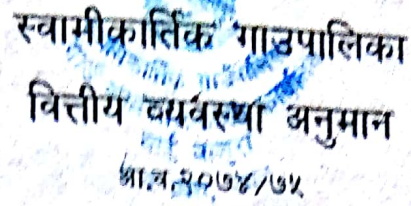 स्वामीकार्तिक गाउपालिका
वित्तीय व्यवस्था अनुमान
आ.व.२०७४/७५